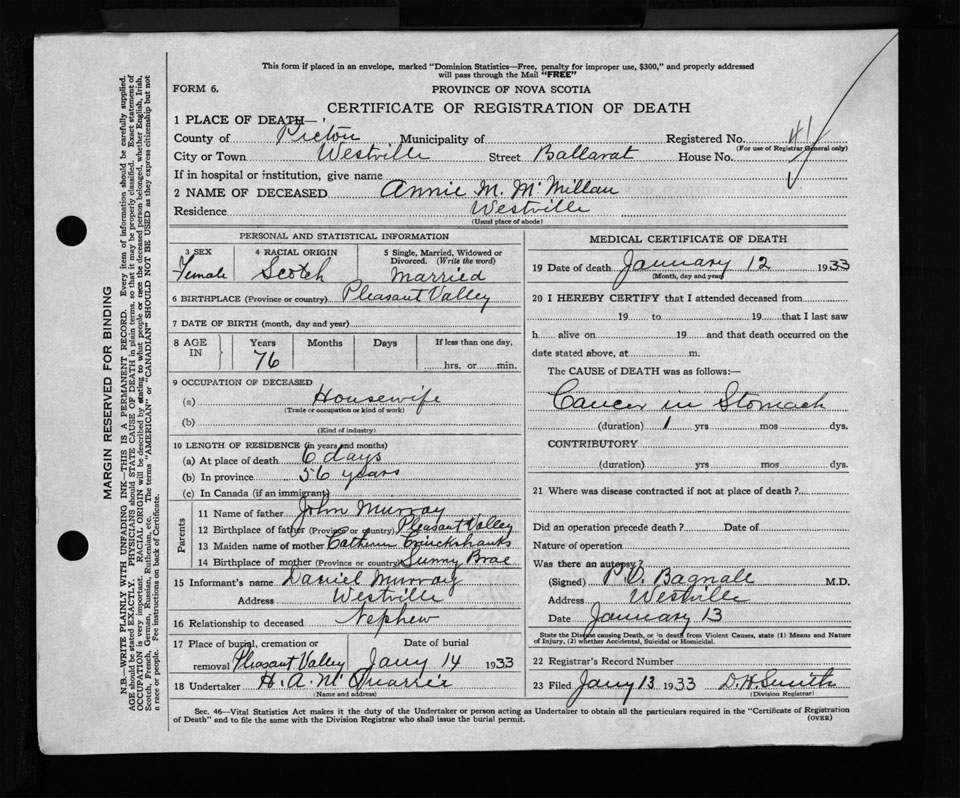 This form if placed in an envelope, marked "Dominion Statistics—Free, penalty for improper use, $300," and properly addressed
will pass through the Mail "FREE"
FORM 6.
PROVINCE OF NOVA SCOTIA
CERTIFICATE OF REGISTRATION OF DEATH
1 PLACE OF DEATH—
County of Pictou Municipality of Registered No. 41
(For use of Registrar General only)
City or Town Westville Street Ballarat House No.
If in hospital or institution, give name
2 NAME OF DECEASED Annie M. McMillan
Residence Westville
(Usual place of abode)
PERSONAL AND STATISTICAL INFORMATION
3 SEX 4 RACIAL ORIGIN 5 Single, Married, Widowed or
Divorced. (Write the word)
Female Scotch Married
6 BIRTHPLACE (Province or country) Pleasant Valley
7 DATE OF BIRTH (month, day and year)
8 AGE IN Years Months Days If less than one day,
76 hrs. or min.
9 OCCUPATION OF DECEASED
(a) Housewife
(Trade or occupation or kind of work)
(b)
(Kind of industry)
10 LENGTH OF RESIDENCE (in years and months)
(a) At place of death 6 days
(b) In province 56 years
(c) In Canada (if an immigrant)
Parents
11 Name of father John Murray
12 Birthplace of father (Province or country) Pleasant Valley
13 Maiden name of mother Cruickshanks
14 Birthplace of mother (Province or country) Sunny Brae
15 Informant's name Daniel Murray
Address Westville
16 Relationship to deceased Nephew
17 Place of burial, cremation or Date of burial
removal Pleasant Valley Jany 14 1933
18 Undertaker H. A. McQuarrie
(Name and address)
MEDICAL CERTIFICATE OF DEATH
19 Date of death January 12 1933
(Month, day and year)
20 I HEREBY CERTIFY that I attended deceased from
19 to 19 that I last saw
h alive on 19 and that death occurred on the
date stated above, at m.
The CAUSE of DEATH was as follows:—
Cancer in Stomach
(duration) 1 yrs mos dys.
CONTRIBUTORY
(duration) yrs mos dys.
21 Where was disease contracted if not at place of death?
Did an operation precede death? Date of
Nature of operation
Was there an autopsy?
(Signed) Bagnall M.D.
Address Westville
Date January 13
State the Disease causing Death, or in death from Violent Causes, state (1) Means and Nature
of Injury, (2) whether Accidental, Suicidal or Homicidal.
22 Registrar's Record Number
23 Filed Jany 13 1933 D. H. Smith
(Division Registrar)
Sec. 46—Vital Statistics Act makes it the duty of the Undertaker or person acting as Undertaker to obtain all the particulars required in the "Certificate of Registration
of Death" and to file the same with the Division Registrar who shall issue the burial permit.
(OVER)
MARGIN RESERVED FOR BINDING
N.B.—WRITE PLAINLY WITH UNFADING INK—THIS IS A PERMANENT RECORD. Every item of information should be carefully supplied.
AGE should be stated EXACTLY. PHYSICIANS should STATE CAUSE OF DEATH in plain terms, so that it may be properly classified. Exact statement of
OCCUPATION is very important. RACIAL ORIGIN will be described by stating to what people or race the deceased person belonged, whether English, Irish,
Scotch, French, German, Russian, Ruthenian, etc. The terms "AMERICAN" or "CANADIAN" SHOULD NOT BE USED as they express citizenship but not
a race or people. Fee instructions on back of Certificate.